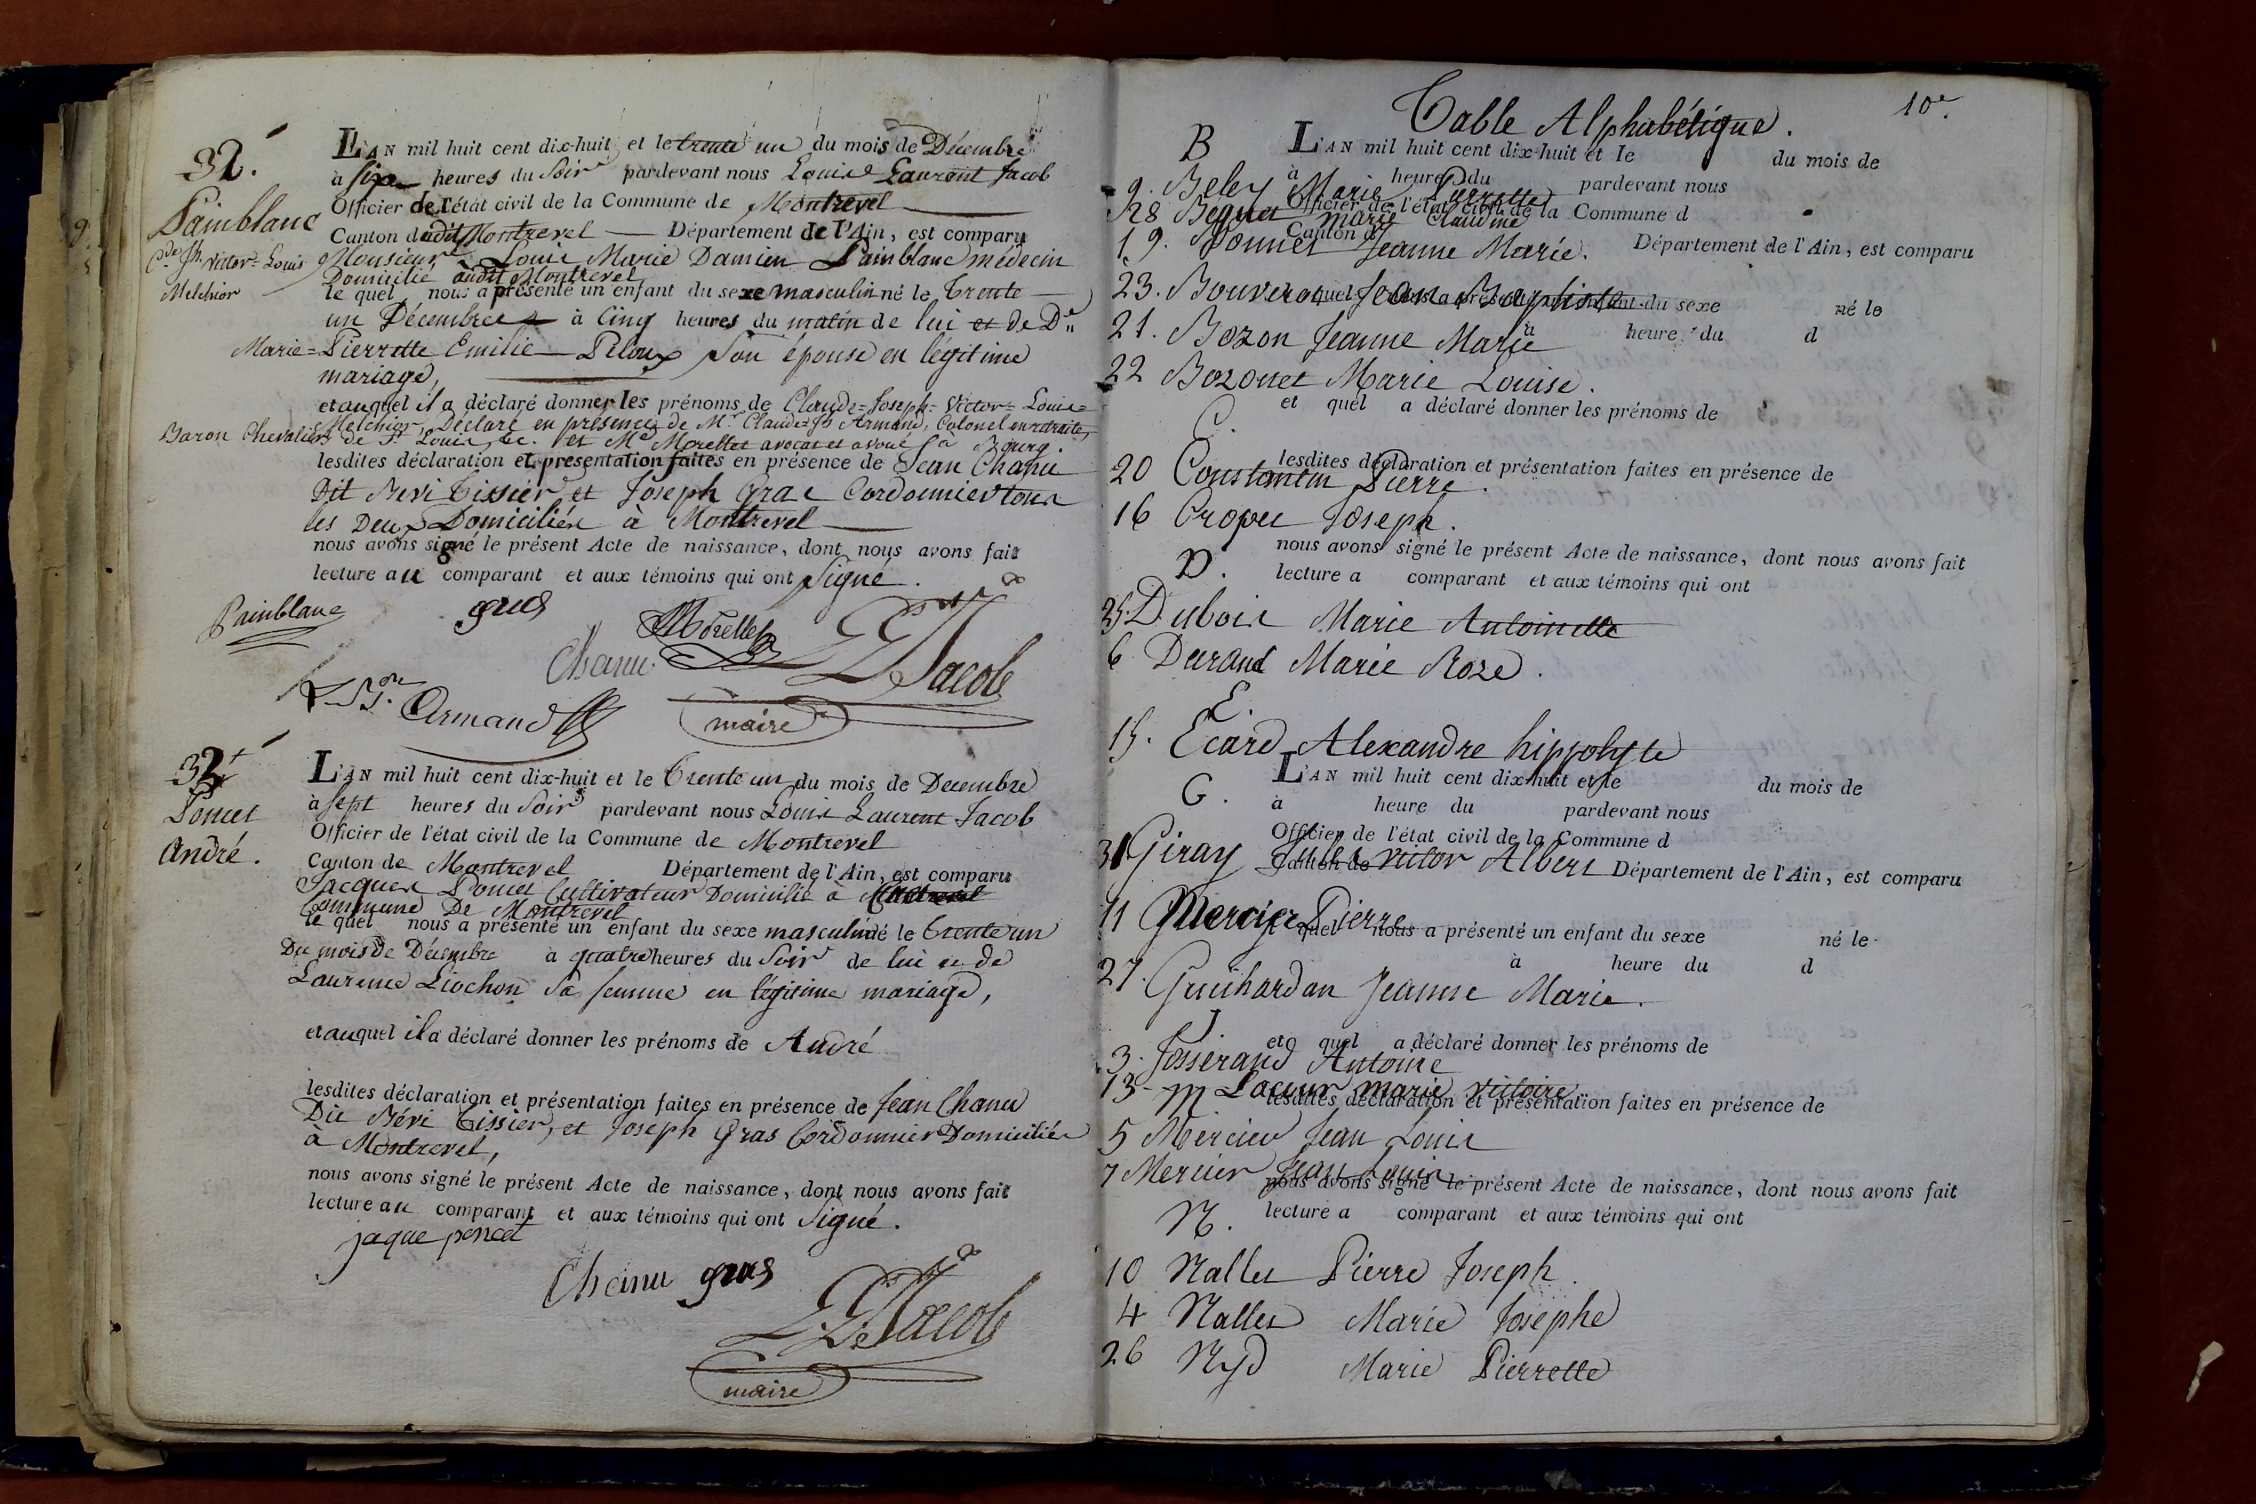 32.
Painblanc
Cde Jh. Victor-Louis
Melchior
L'AN mil huit cent dix-huit et le trente un du mois de Décembre
à six heures du Soir pardevant nous Louis Laurent Jacob
Officier de l'état civil de la Commune de Montrevel
Canton dudit Montrevel Département de l'Ain, est comparu
Monsieur Louis Marie Damien Painblanc médecin
Domicilié audit Montrevel
le quel nous a présenté un enfant du sexe masculin né le trente
un Décembre à Cinq heures du matin de lui et de De
Marie-Pierrette Emilie Peloux Son épouse en légitime
mariage,
et auquel il a déclaré donner les prénoms de Claude-Joseph-Victor-Louis-
Melchior, Déclaré en présence de Mr. Claude-Jh Armand, Colonel en retraite,
Baron Chevalier de St Louis, &c. et Me Morellet avocat et avoué à Bourg.
lesdites déclaration et présentation faites en présence de Jean Chanu
Dit Névi Tissier, et Joseph Gras Cordonnier tous
les Deux Domiciliés à Montrevel
nous avons signé le présent Acte de naissance, dont nous avons fait
lecture au comparant et aux témoins qui ont Signé.
Painblanc
gras
Morellet
Chanu
L L Jacob
Armand
maire
32
Poncet
André.
L'AN mil huit cent dix-huit et le Trente un du mois de Decembre
à sept heures du Soir pardevant nous Louis Laurent Jacob
Officier de l'état civil de la Commune de Montrevel
Canton de Montrevel Département de l'Ain, est comparu
Jacques Poncet Cultivateur Domicilié à
Commune De Montrevel
le quel nous a présenté un enfant du sexe masculin né le trente un
Du mois De Décembre à quatre heures du Soir de lui et de
Laurence Liochon Sa femme en légitime mariage,
et auquel il a déclaré donner les prénoms de André
lesdites déclaration et présentation faites en présence de Jean Chanu
Dit Névi Tissier, et Joseph Gras Cordonnier Domiciliés
à Montrevel,
nous avons signé le présent Acte de naissance, dont nous avons fait
lecture au comparant et aux témoins qui ont Signé.
jaque poncet
Chanu gras
L L Jacob
maire
Table Alphabétique.
10e.
B
L'AN mil huit cent dix-huit et le du mois de
à heure du pardevant nous
9. Beley Marie Pierrette
Officier de l'état civil de la Commune d
28 Beguet marie Claudine
Canton d Département de l'Ain, est comparu
19. Bonnet Jeanne Marie.
23. Bouveron Jean Baptiste
quel nous a présenté un enfant du sexe né le
21. Bozon Jeanne Marie
à heure du d
22 Bozonet Marie Louise.
et quel a déclaré donner les prénoms de
C.
lesdites déclaration et présentation faites en présence de
20 Constantin Pierre.
16 Cropet Joseph.
nous avons signé le présent Acte de naissance, dont nous avons fait
D.
lecture a comparant et aux témoins qui ont
25. Dubois Marie Antoinette
6 Durand Marie Roze.
E.
15. Ecard Alexandre hippolyte
L'AN mil huit cent dix-huit et le du mois de
G.
à heure du pardevant nous
Officier de l'état civil de la Commune d
31 Giray Jules Victor Albert
Canton de Département de l'Ain, est comparu
11 Guercier Pierre
quel nous a présenté un enfant du sexe né le
à heure du d
27. Guichardan Jeanne Marie.
J.
et quel a déclaré donner les prénoms de
3. Josserand Antoine
13- Lacour marie victoire.
M
lesdites déclaration et présentation faites en présence de
5 Mercier Jean Louis
7 Mercier Jean Louis
nous avons signé le présent Acte de naissance, dont nous avons fait
N.
lecture a comparant et aux témoins qui ont
10 Nallet Pierre Joseph.
4 Nallet Marie Josephe
26 Nyd Marie Pierrette